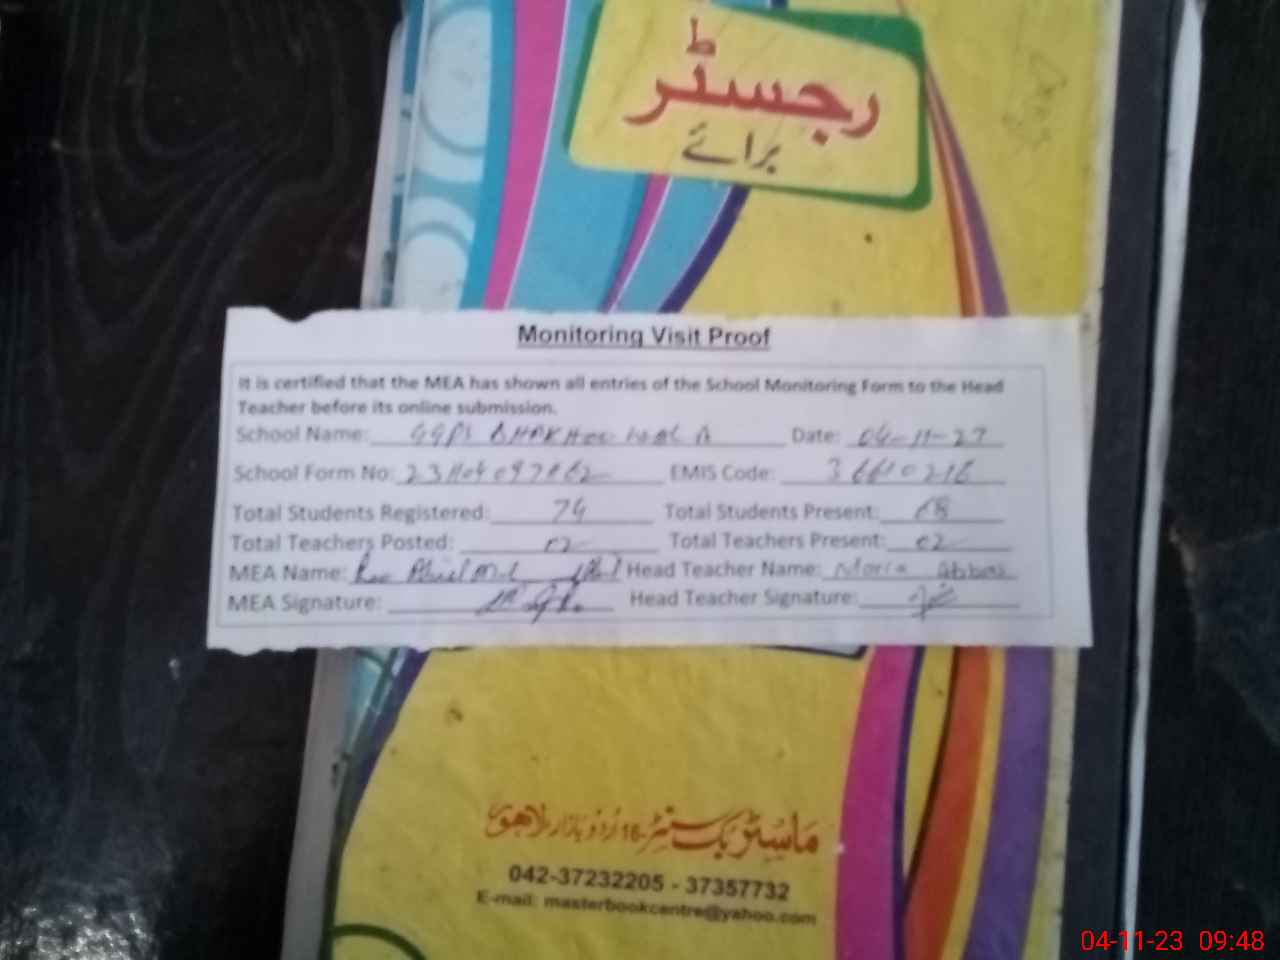 رجسٹر
برائے
Monitoring Visit Proof
It is certified that the MEA has shown all entries of the School Monitoring Form to the Head
Teacher before its online submission.
School Name: GGPS Date: 04-11-23
School Form No: EMIS Code:
Total Students Registered: 74 Total Students Present: 68
Total Teachers Posted: 02 Total Teachers Present: 02
MEA Name: Head Teacher Name: Maria Abbas
MEA Signature: Head Teacher Signature:
ماسٹر بک سنٹر 16 اردو بازار لاہور
042-37232205 - 37357732
E-mail: masterbookcentre@yahoo.com
04-11-23 09:48